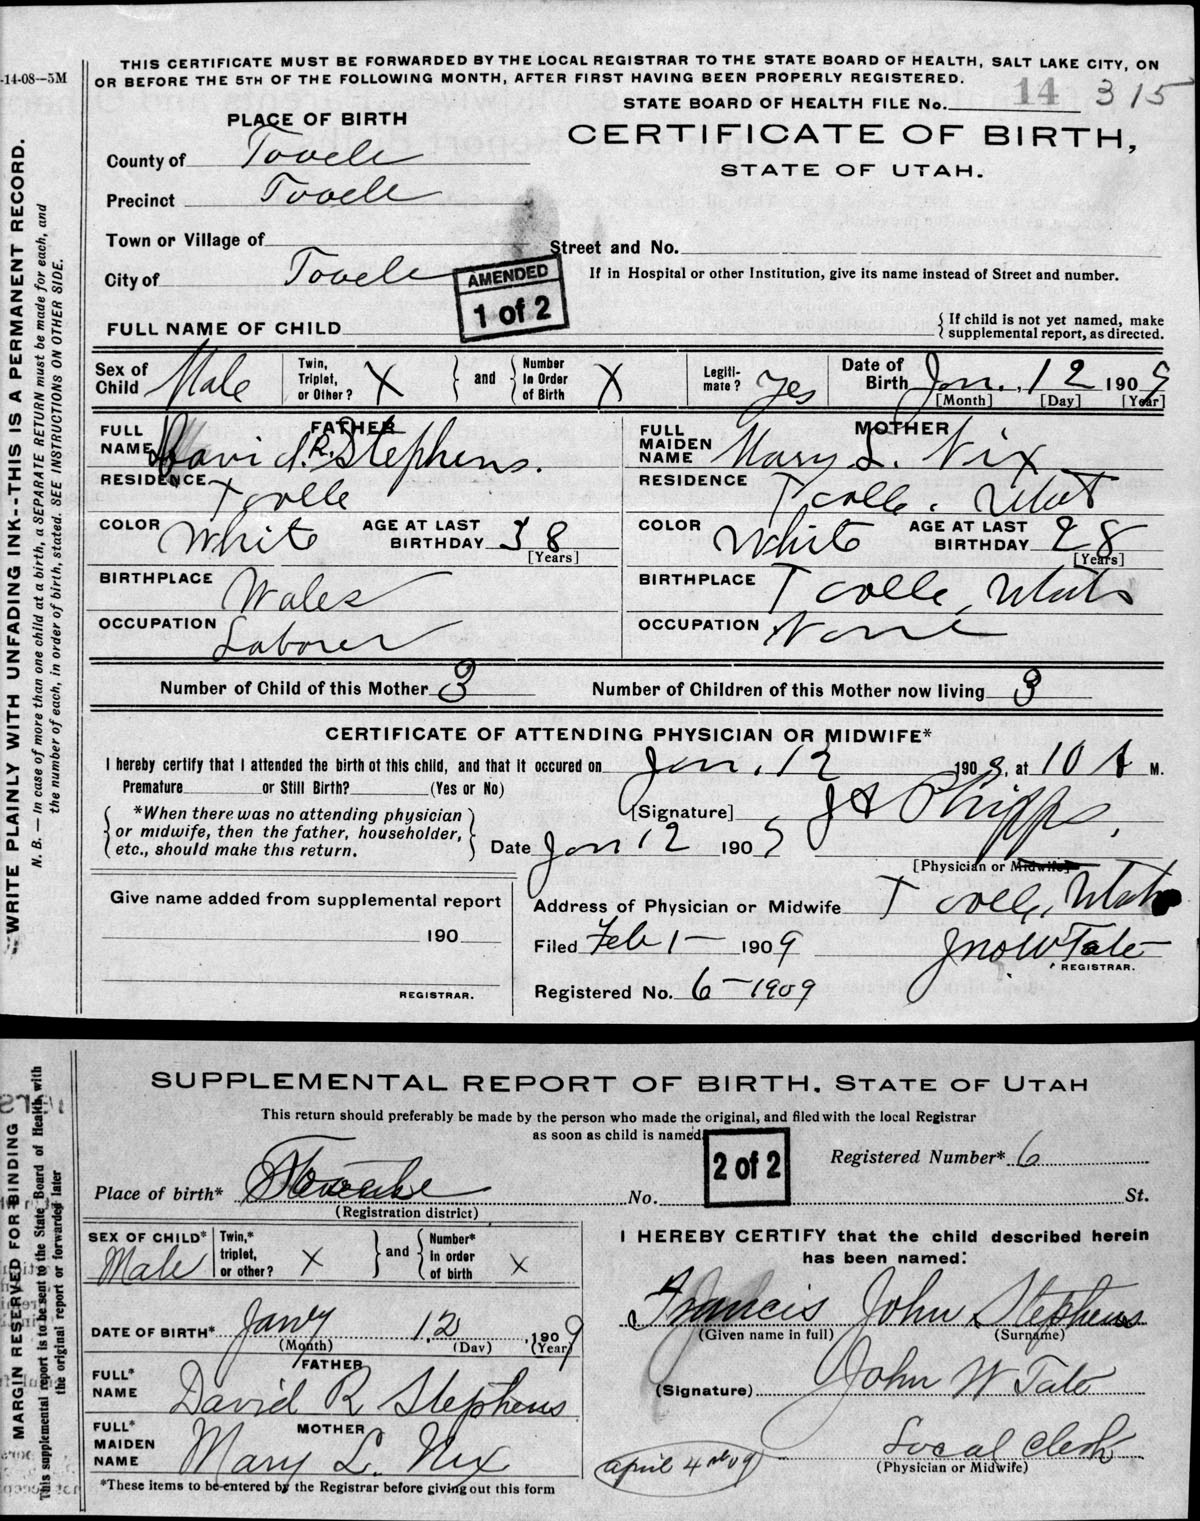 -14-08—5M
THIS CERTIFICATE MUST BE FORWARDED BY THE LOCAL REGISTRAR TO THE STATE BOARD OF HEALTH, SALT LAKE CITY, ON
OR BEFORE THE 5TH OF THE FOLLOWING MONTH, AFTER FIRST HAVING BEEN PROPERLY REGISTERED.
STATE BOARD OF HEALTH FILE No. 14 315
PLACE OF BIRTH
CERTIFICATE OF BIRTH,
STATE OF UTAH.
County of Tooele
Precinct Tooele
Town or Village of
Street and No.
City of Tooele
If in Hospital or other Institution, give its name instead of Street and number.
AMENDED
1 of 2
FULL NAME OF CHILD
{ If child is not yet named, make
supplemental report, as directed.
Sex of Child Male Twin, Triplet, or Other? X } and { Number In Order of Birth X Legiti-mate? Yes Date of Birth Jan. 12 1909
[Month] [Day] [Year]
FATHER
FULL NAME David R. Stephens.
RESIDENCE Tooele
COLOR White AGE AT LAST BIRTHDAY 38
[Years]
BIRTHPLACE Wales
OCCUPATION Laborer
MOTHER
FULL MAIDEN NAME Mary L. Nix
RESIDENCE Tooele, Utah
COLOR White AGE AT LAST BIRTHDAY 28
[Years]
BIRTHPLACE Tooele, Utah
OCCUPATION None
Number of Child of this Mother 3 Number of Children of this Mother now living 3
CERTIFICATE OF ATTENDING PHYSICIAN OR MIDWIFE*
I hereby certify that I attended the birth of this child, and that it occured on Jan. 12 1909, at 10 A M.
Premature or Still Birth? (Yes or No)
*When there was no attending physician
or midwife, then the father, householder,
etc., should make this return.
[Signature] J A Phipps,
Date Jan 12 1909
[Physician or Midwife]
Give name added from supplemental report
190
REGISTRAR.
Address of Physician or Midwife Tooele, Utah
Filed Feb 1— 1909 Jno W Tate
REGISTRAR.
Registered No. 6—1909
WRITE PLAINLY WITH UNFADING INK--THIS IS A PERMANENT RECORD.
N. B. — In case of more than one child at a birth, a SEPARATE RETURN must be made for each, and
the number of each, in order of birth, stated. SEE INSTRUCTIONS ON OTHER SIDE.
SUPPLEMENTAL REPORT OF BIRTH. STATE OF UTAH
This return should preferably be made by the person who made the original, and filed with the local Registrar
as soon as child is named.
2 of 2
Registered Number* 6
Place of birth* No. St.
(Registration district)
SEX OF CHILD* Male Twin,* triplet, or other? X } and { Number* in order of birth X
DATE OF BIRTH* Jany 12, 1909
(Month) (Day) (Year)
FATHER
FULL* NAME David R Stephens
MOTHER
FULL* MAIDEN NAME Mary L. Nix
*These items to be entered by the Registrar before giving out this form
I HEREBY CERTIFY that the child described herein
has been named:
Francis John Stephens
(Given name in full) (Surname)
(Signature) John W Tate
Local Clerk
(Physician or Midwife)
April 4th 09
MARGIN RESERVED FOR BINDING
This supplemental report is to be sent to the State Board of Health with
the original report or forwarded later